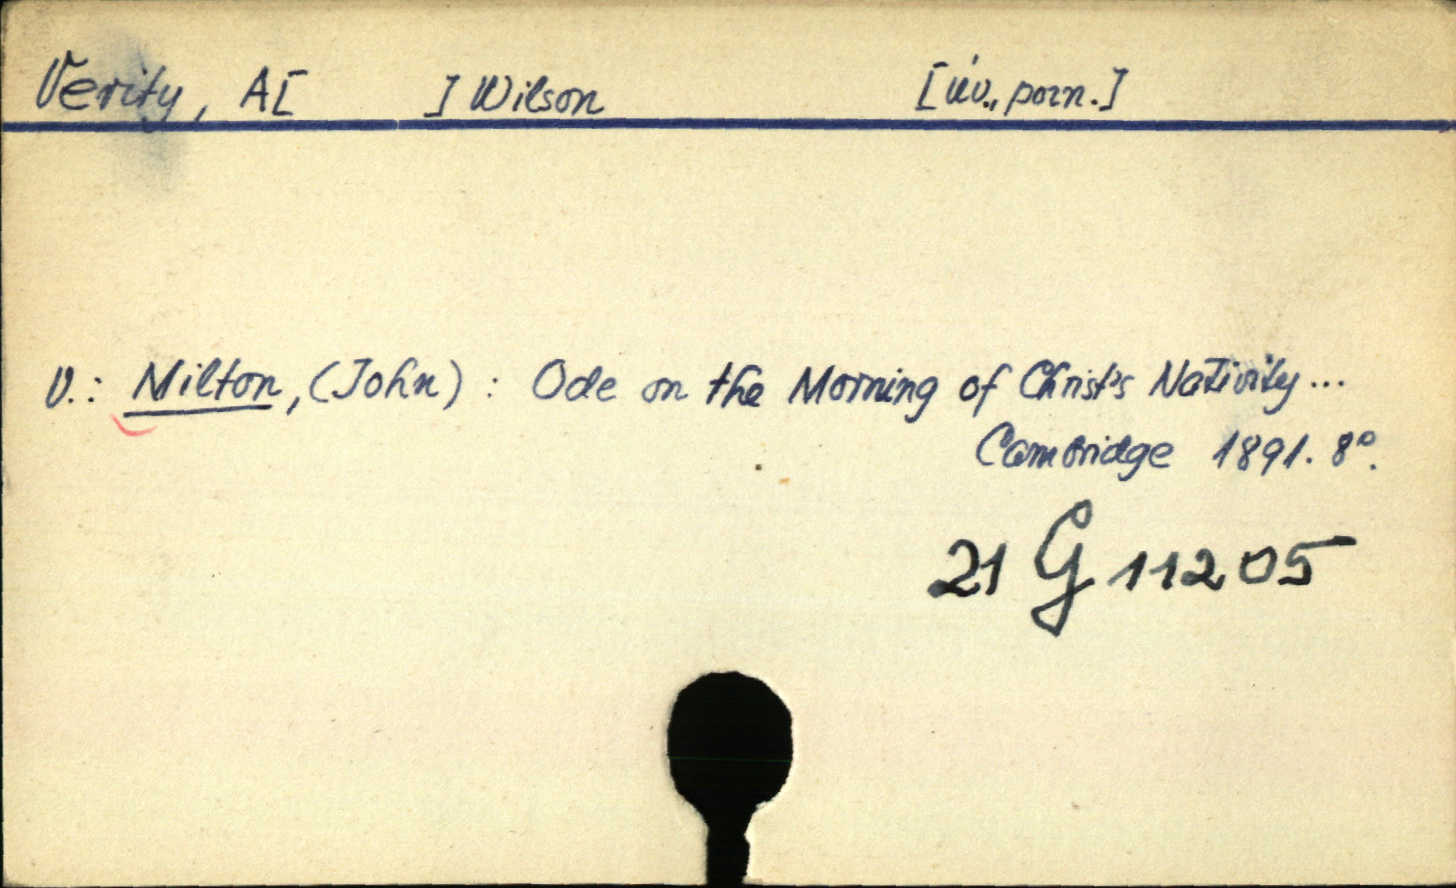 Verity, A[ ] Wilson [úv., pozn.]
V.: Milton, (John): Ode on the Morning of Christ's Nativity...
Cambridge 1891. 8°.
21 G 11205